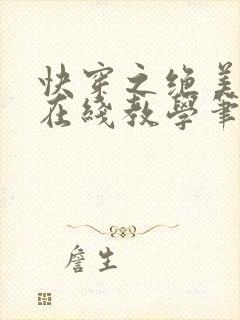 快穿之绝美
在线教學筆
詹生